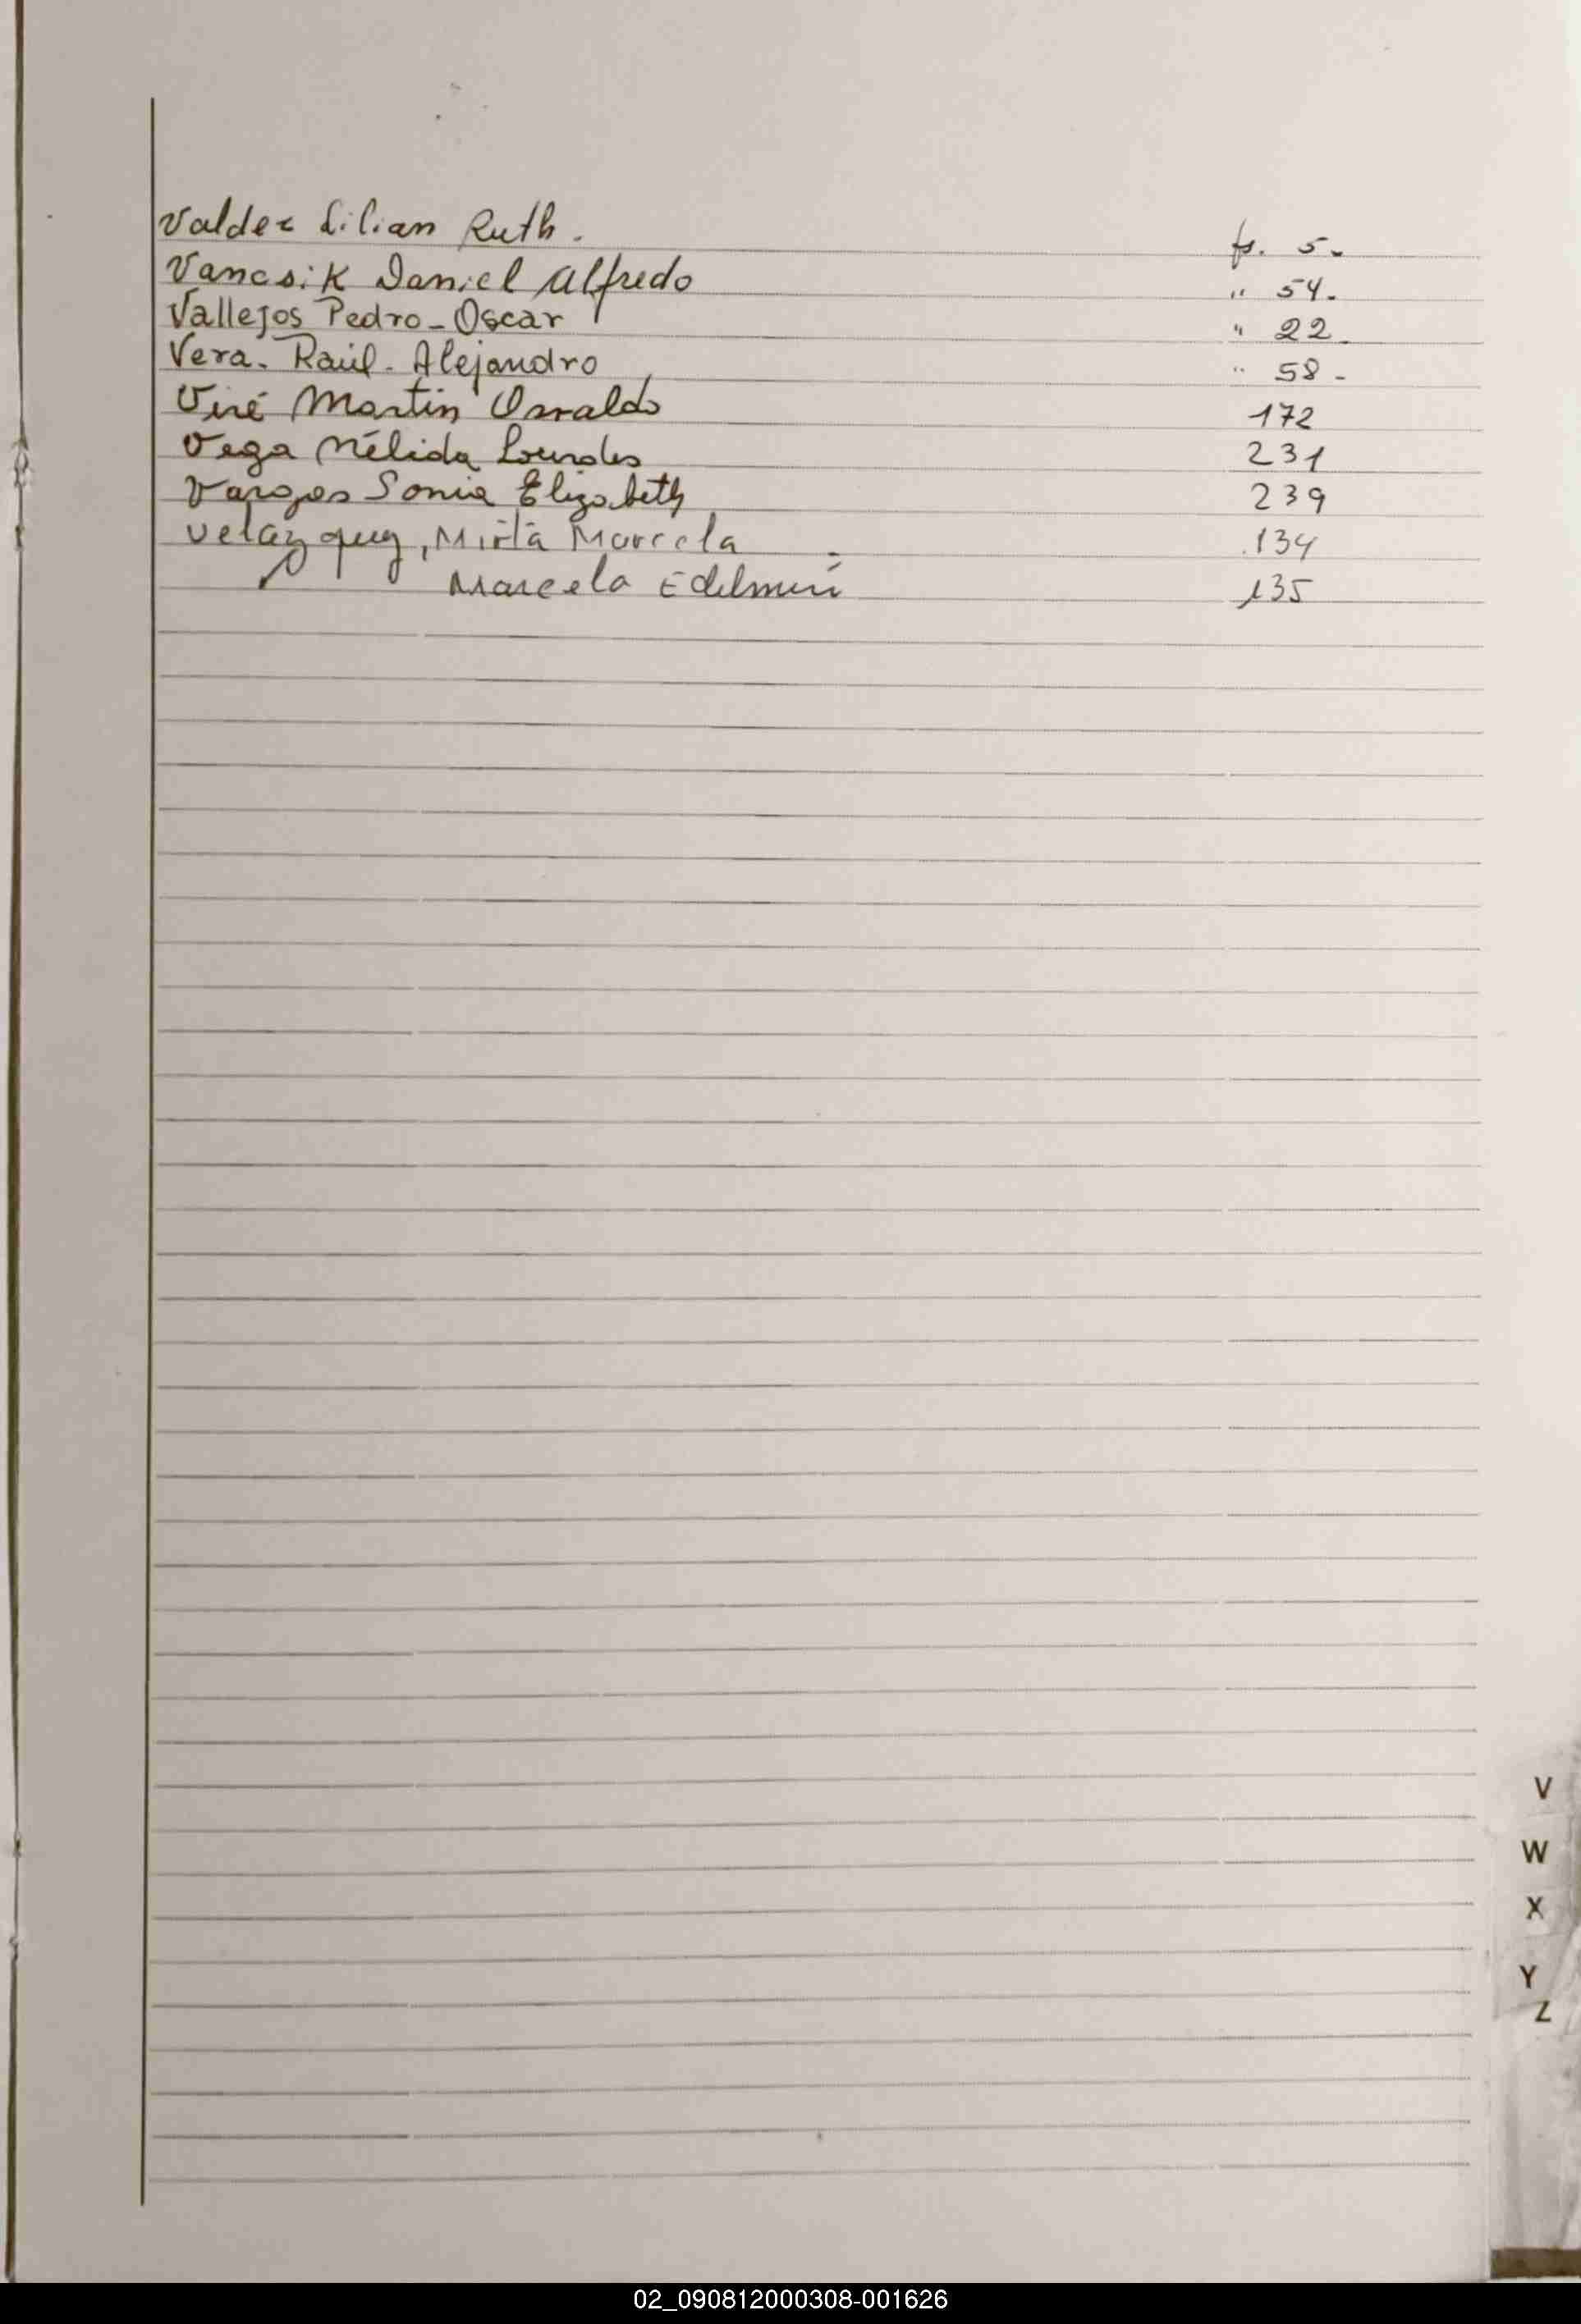 Valdez Lilian Ruth. fs. 5-
Vancsik Daniel Alfredo " 54-
Vallejos Pedro-Oscar " 22-
Vera. Raúl. Alejandro " 58-
Viré Martin Osvaldo 172
Vega Nélida Lourdes 231
Vargas Sonia Elizabeth 239
Velazquez, Mirta Marcela 134
Marcela 135
V
W
X
Y
Z
02_090812000308-001626